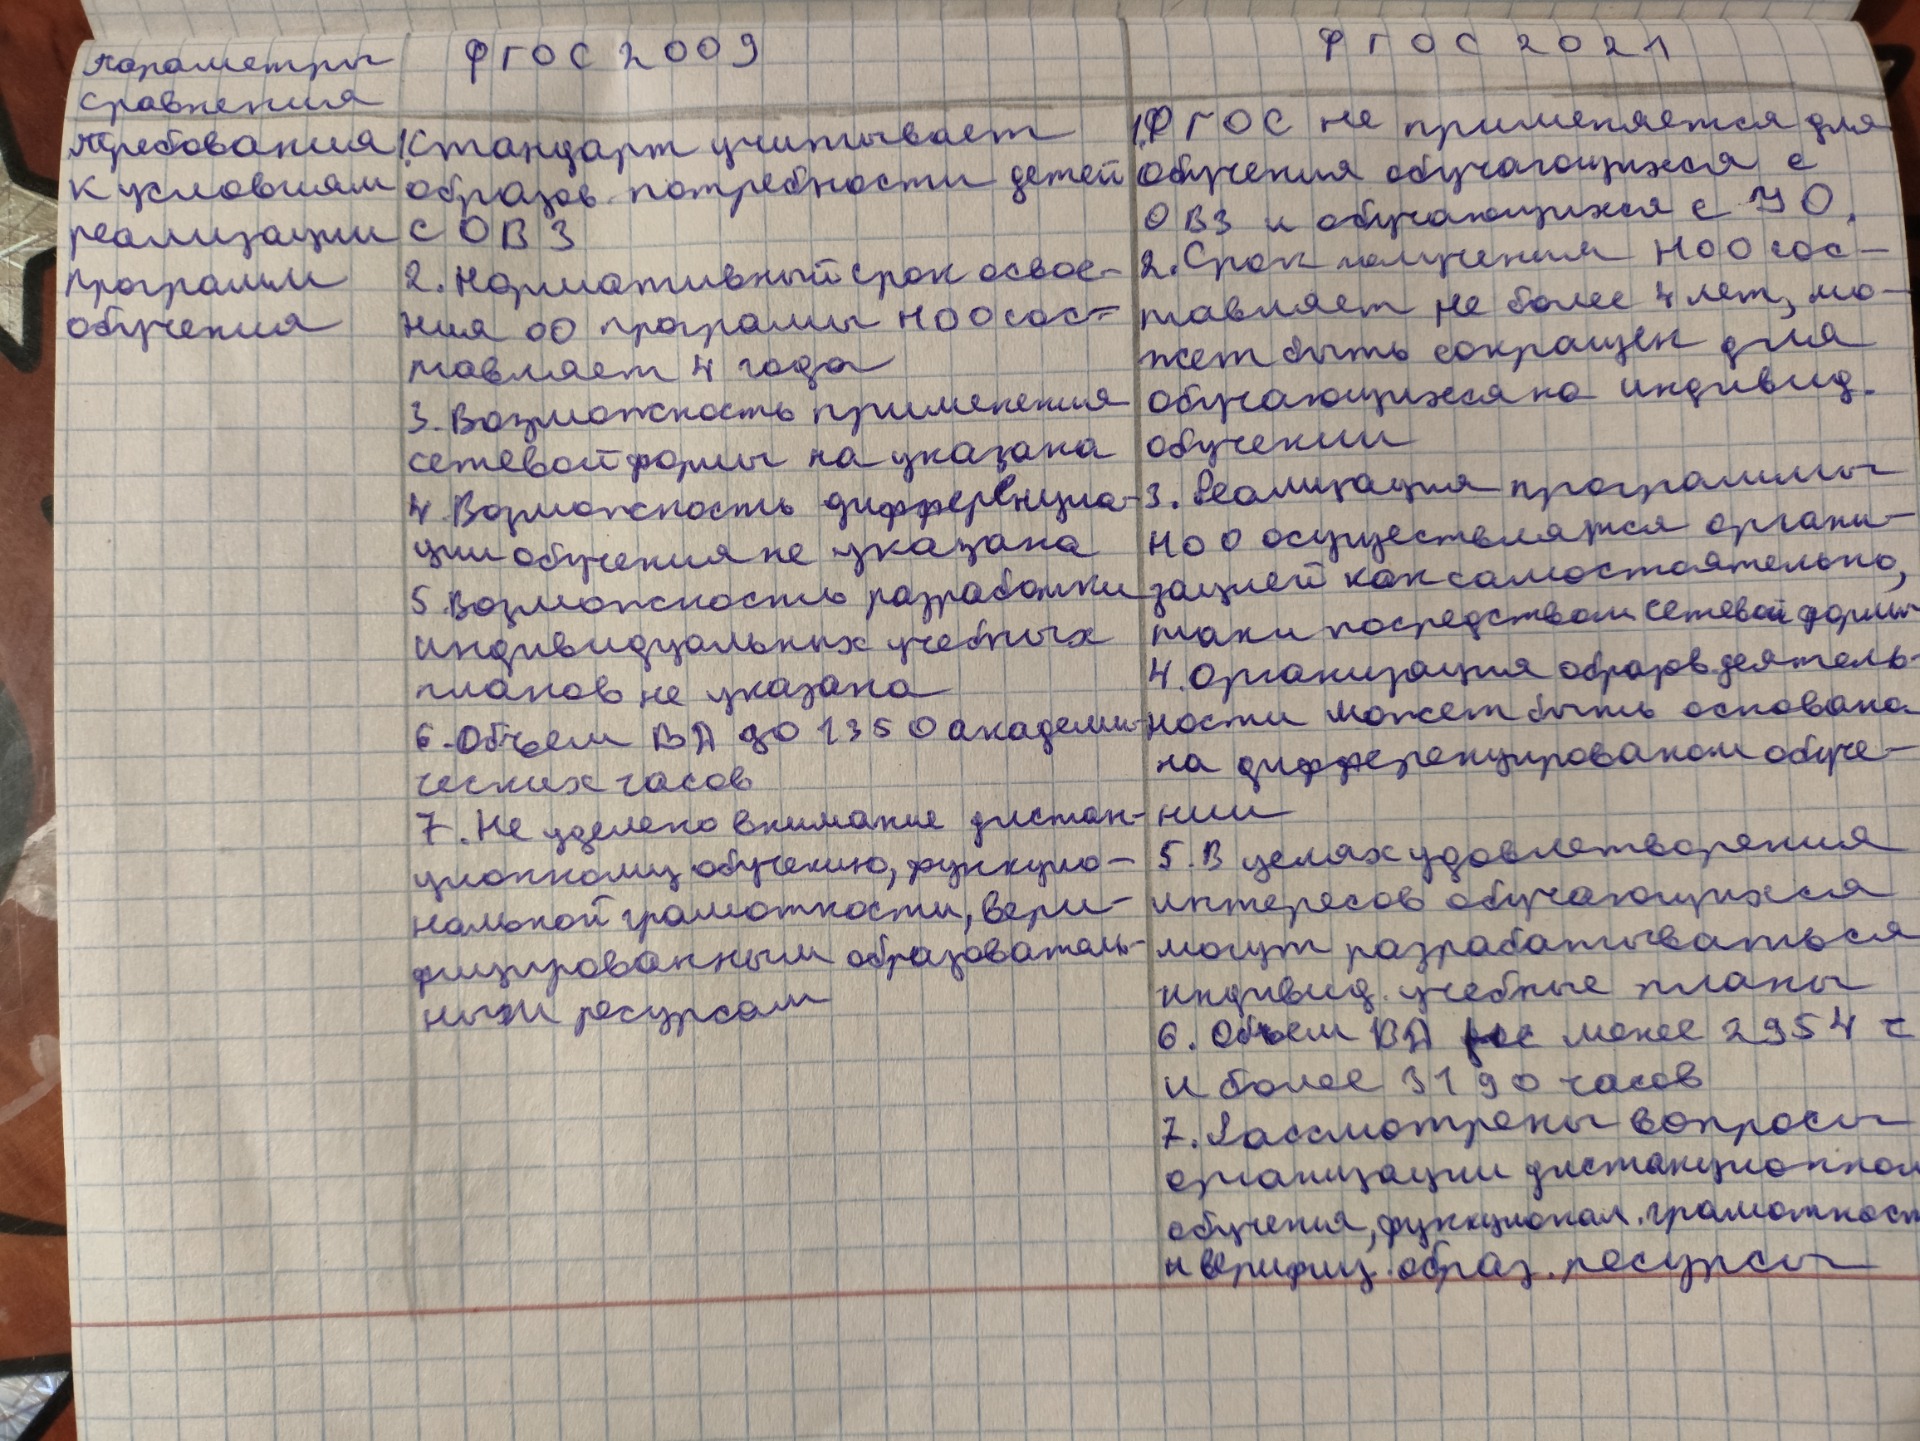 Параметры
сравнения
ФГОС 2009
ФГОС 2021
Требования
к условиям
реализации
программ
обучения
1. Стандарт учитывает
образов. потребности детей
с ОВЗ
2. Нормативный срок освое-
ния ОО програмы НОО сос-
тавляет 4 года
3. Возможность применения
сетевой формы на указана
4. Возможность дифференциа-
ции обучения не указана
5. Возможность разработки
индивидуальных учебных
планов не указана
6. Объем ВД до 1350 академи-
ческих часов
7. Не уделено внимание дистан-
ционному обучению, функцио-
нальной грамотности, вери-
фицированным образователь-
ным ресурсам
1. ФГОС не применяется для
обучения обучающихся с
ОВЗ и обучающихся с УО.
2. Срок получения НОО сос-
тавляет не более 4 лет, мо-
жет быть сокращен для
обучающихся на индивид.
обучении
3. Реализация программы
НОО осуществляятся органи-
зацией как самостоятельно,
так и посредством сетевой формы
4. Организация образов деятель-
ности может быть основана
на дифференцированом обуче-
нии
5. В целях удовлетворения
интересов обучающихся
могут разрабатываться
индивид. учебные планы
6. Объем ВД не менее 2954 ч
и более 3190 часов
7. Рассмотрены вопросы
организации дистанционном
обучения, функционал. грамотност
и верифиц. образ. ресурсы